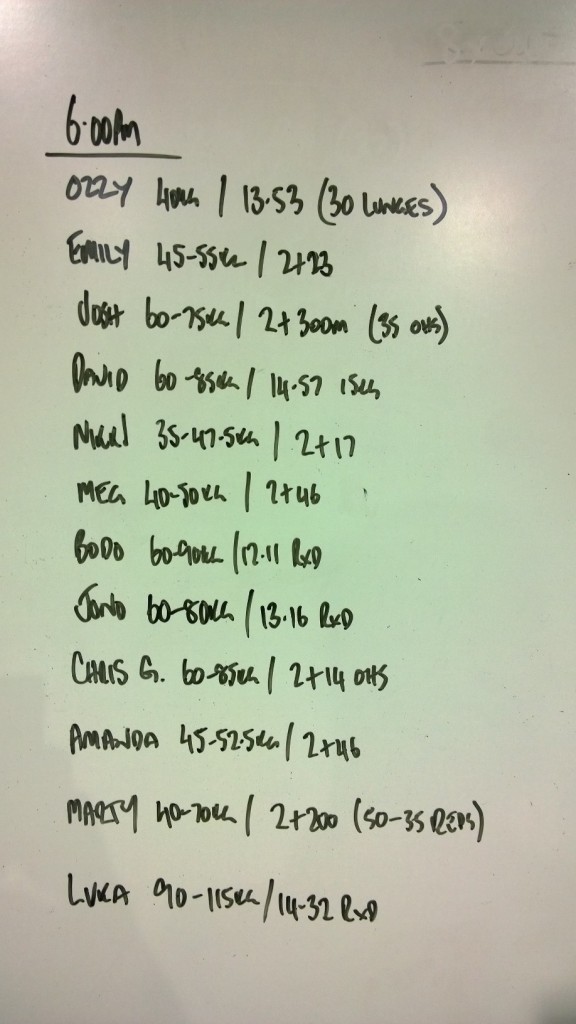 6.00AM
OZZY 40KG / 13.53 (30 LUNGES)
EMILY 45-55KG / 2+23
JOSH 60-75KG / 2+300m (35 OHS)
DAVID 60-85KG / 14.57 15KG
NIKKI 35-47.5KG / 2+17
MEG 40-50KG / 2+46
BODO 60-90KG / 12.11 RxD
JONO 60-80KG / 13.16 RxD
CHRIS G. 60-85KG / 2+14 OHS
AMANDA 45-52.5KG / 2+46
MARTY 40-70KG / 2+200 (50-35 REPS)
LUKA 90-115KG / 14-32 RxD